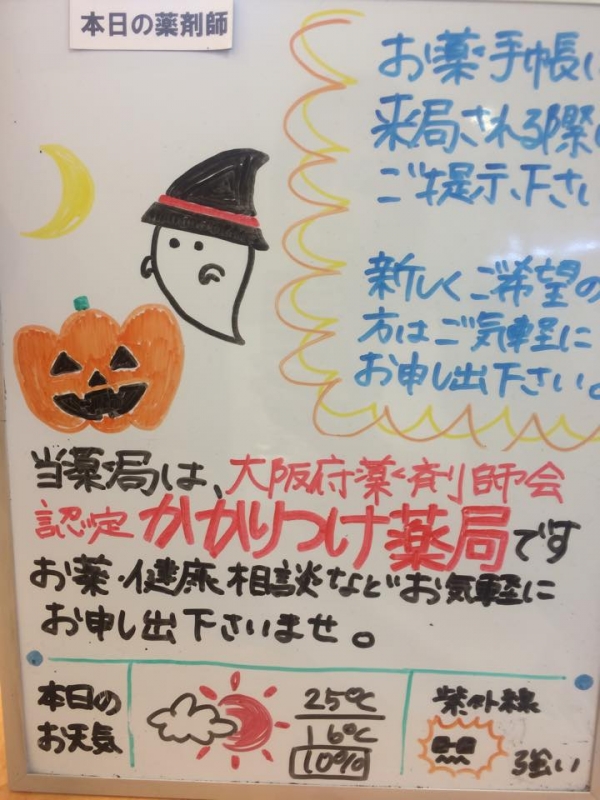 本日の薬剤師
お薬手帳
来局される際
ご提示下さい
新しくご希望の
方はご気軽に
お申し出下さい。
当薬局は、大阪府薬剤師会
認定かかりつけ薬局です
お薬・健康相談などお気軽に
お申し出下さいませ。
本日の
お天気
25℃
16℃
10%
紫外線
強い